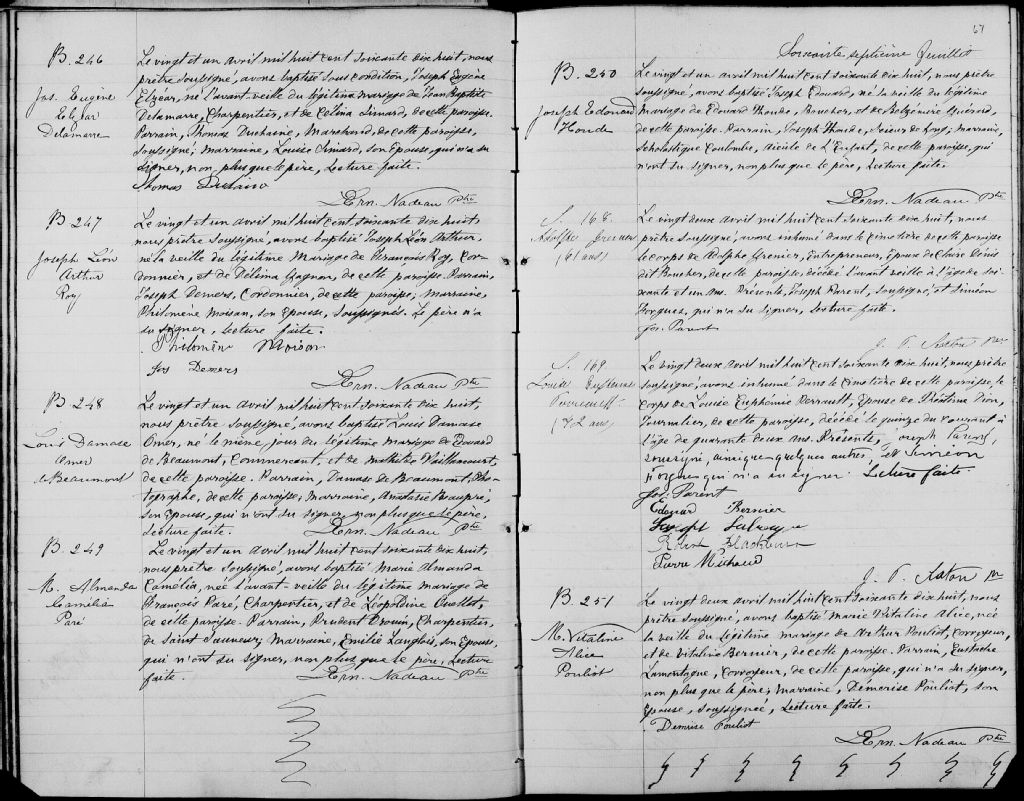 B. 246
Jos. Eugène
Elzéar
Delamarre
Le vingt et un avril mil huit cent soixante dix huit, nous
prêtre soussigné, avons baptisé sous condition, Joseph Eugène
Elzéar, né l'avant-veille du légitime mariage de Jean Baptiste
Delamarre, Charpentier, et de Célina Simard, de cette paroisse.
Parrain, Thomas Duchaine, Marchand, de cette paroisse,
soussigné; Marraine, Louise Simard, son Epouse, qui n'a su
signer, non plus que le père, Lecture faite.
Thomas
Ern. Nadeau Ptre
B. 247
Joseph Léon
Arthur
Roy
Le vingt et un avril mil huit cent soixante dix huit,
nous prêtre soussigné, avons baptisé Joseph Léon Arthur,
né la veille du légitime Mariage de François Roy, Cor-
donnier, et de Délima Gagnon, de cette paroisse. Parrain,
Joseph Demers, Cordonnier, de cette paroisse; Marraine,
Philomène Moisan, son Epouse, soussignés. Le père n'a
su signer, Lecture faite.
Philomène Moisan
Jos Demers
Ern. Nadeau Ptre
B. 248
Louis Damase
Omer
de Beaumont
Le vingt et un avril mil huit cent soixante dix huit,
nous prêtre soussigné, avons baptisé Louis Damase
Omer, né le même jour du légitime mariage de Edouard
de Beaumont, Commerçant, et de Mathilde Vaillancourt,
de cette paroisse. Parrain, Damase de Beaumont, Pho-
tographe, de cette paroisse; Marraine, Anatalie Beaupré,
son Epouse, qui n'ont su signer non plus que le père,
Lecture faite. Ern. Nadeau Ptre
B. 249
M. Almanda
Camélia
Paré
Le vingt et un avril mil huit cent soixante dix huit,
nous prêtre soussigné, avons baptisé Marie Almanda
Camélia, née l'avant-veille du légitime mariage de
François Paré, Charpentier, et de Léopoldine Ouellet,
de cette paroisse. Parrain, Prudent Drouin, Charpentier,
de Saint Sauveur; Marraine, Emilie Langlois, son Epouse,
qui n'ont su signer, non plus que le père, Lecture
faite. Ern. Nadeau Ptre
67
Soixante septième feuillet
B. 250
Joseph Edouard
Houde
Le vingt et un avril mil huit cent soixante dix huit, nous prêtre
soussigné, avons baptisé Joseph Edouard, né la veille du légitime
mariage de Edouard Houde, Boucher, et de Belzémire Guérard,
de cette paroisse. Parrain, Joseph Houde, Scieur de Long; Marraine,
Scholastique Coulombe, aieule de L'Enfant, de cette paroisse, qui
n'ont su signer, non plus que le père, Lecture faite.
Ern. Nadeau Ptre
S. 168.
Adolphe Grenier
(61 ans)
Le vingt deux avril mil huit cent soixante dix huit, nous
prêtre soussigné, avons inhumé dans le cimetière de cette paroisse
le corps de Adolphe Grenier, Entrepreneur, Epoux de Claire Denis
dit Boucher, de cette paroisse, décédé l'avant veille à l'âge de soi-
xante et un ans. Présents, Joseph Parent, soussigné, et Siméon
Forgues, qui n'a su signer, Lecture faite.
Jos. Parent
S. 169
Louise Euphémie
(42 ans)
Le vingt deux avril mil huit cent soixante dix huit, nous prêtre
soussigné, avons inhumé dans le cimetière de cette paroisse, le
corps de Louise Euphémie Perrault, Epouse de Dion,
Journalier, de cette paroisse, décédée le quinze du courant à
l'âge de quarante deux ans. Présents, Joseph Parent,
soussigné, ainsi que quelques autres et Siméon
Forgues qui n'a su signer Lecture faite.
Jos. Parent
Edouard Bernier
Joseph
Robert Blackburn
Pierre Michaud
B. 251
M. Vitaline
Alice
Pouliot
Le vingt deux avril mil huit cent soixante dix huit, nous
prêtre soussigné, avons baptisé Marie Vitaline Alice, née
la veille du légitime mariage de Arthur Pouliot, Corroyeur,
et de Vitaline Bernier, de cette paroisse. Parrain, Eustache
Lamontagne, Corroyeur, de cette paroisse, qui n'a su signer,
non plus que le père; Marraine, Démerise Pouliot, son
Epouse, soussignée, Lecture faite.
Demrise Pouliot
Ern. Nadeau Ptre